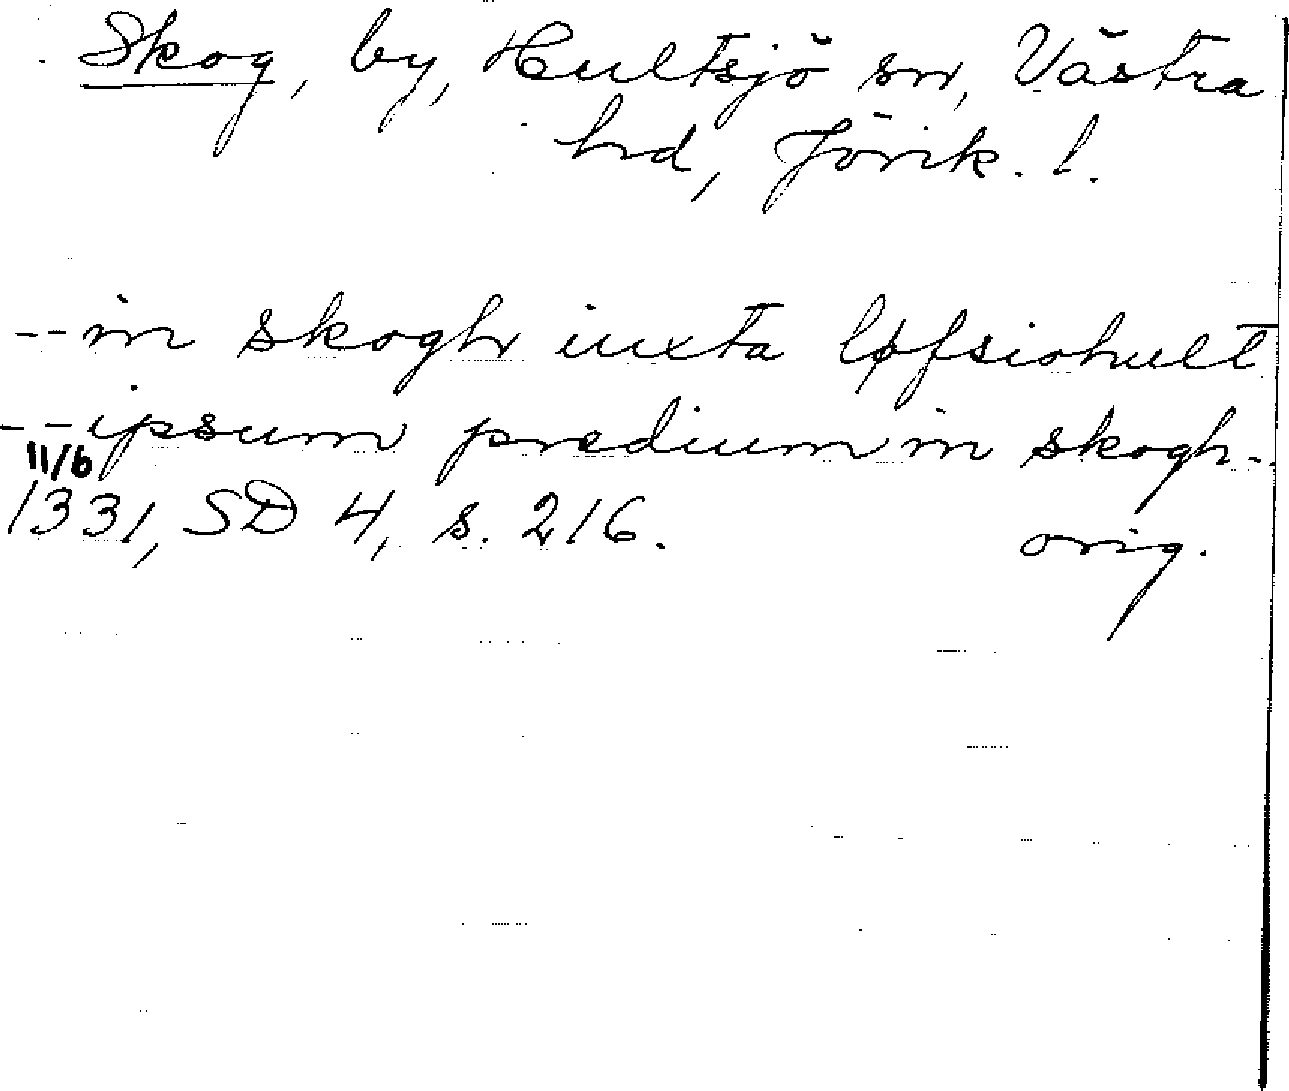 Skog, by, Hultsjö sn, Västra
hd, Jönk. l.
-- in skogh iuxta løfsiohult
-- ipsum predium in skogh -.
11/6
1331, SD 4, s. 216.    orig.